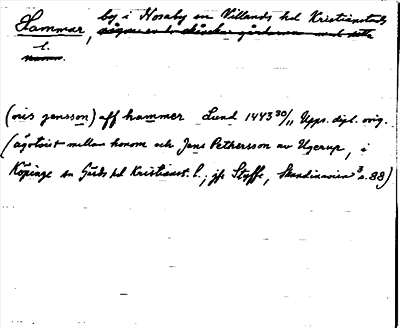 Hammar, by i Nosaby sn Villands hd Kristianstads
l.
(oris jensson) aff hammer Lund 1443 30/11 Upps. dipl. orig.
(ägotvist mellan honom och Jens Pethersson av Ugerup, i
Köpinge sn Gärds hd Kristianst. l.; jfr Styffe, Skandinavien 3 s. 88)